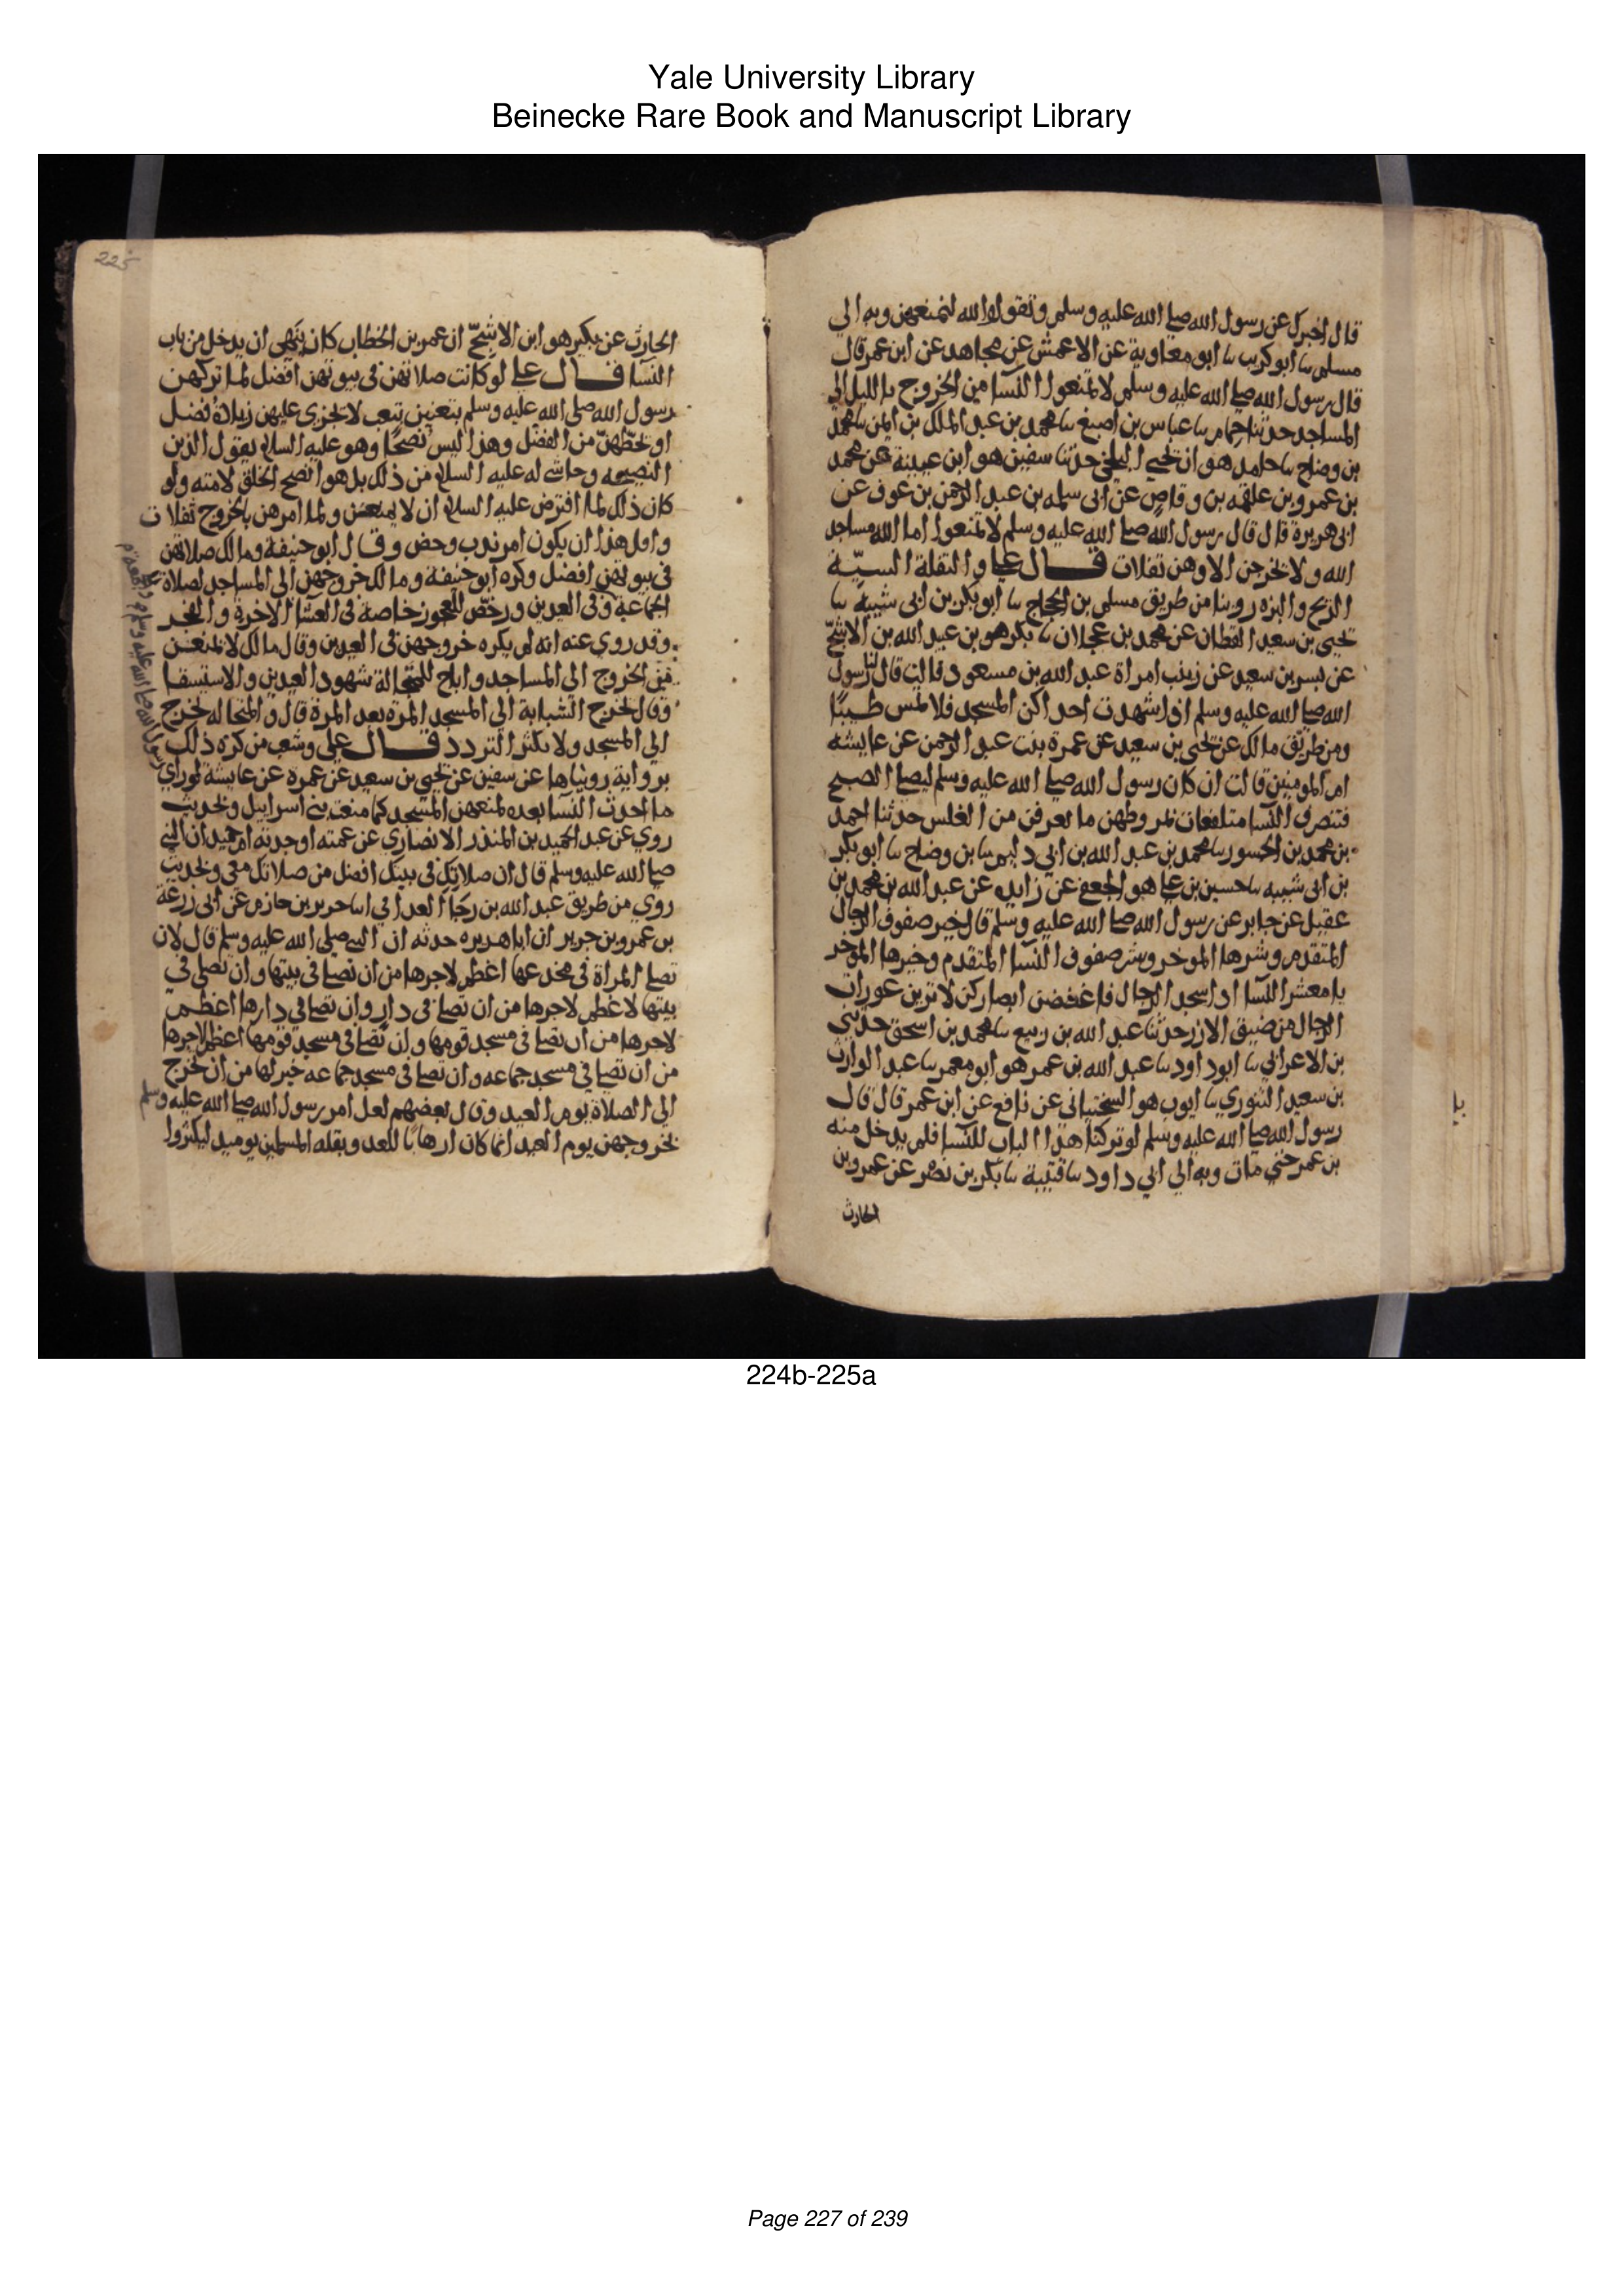 Yale University Library
Beinecke Rare Book and Manuscript Library
قال اخبرك عن رسول الله صلى الله عليه وسلم وتقول والله لنمنعهن وبه الى
مسلم نا ابو كريب نا ابو معاوية عن الاعمش عن مجاهد عن ابن عمر قال
قال رسول الله صلى الله عليه وسلم لا تمنعوا النسا من الخروج بالليل الى
المساجد حدثنا حمام نا عباس بن اصبغ نا محمد بن عبد الملك بن ايمن نا محمد
بن وضاح نا حامد هو ابن يحيى البلخي حدثنا سفين هو ابن عيينة عن محمد
بن عمرو بن علقمه بن وقاص عن ابى سلمه بن عبد الرحمن بن عوف عن
ابى هريرة قال قال رسول الله صلى الله عليه وسلم لا تمنعوا اما الله مساجد
الله ولا يخرجن الا وهن تفلات قال علي والتفلة السيّة
الريح والبزه روينا من طريق مسلم بن الحجاج نا ابو بكر بن ابى شيبة نا
يحيى بن سعيد القطان عن محمد بن عجلان نا بكر هو بن عبد الله بن الاشجّ
عن بسر بن سعيد عن زينب امراة عبد الله بن مسعود قالت قال لنا رسول
الله صلى الله عليه وسلم اذا شهدت احداكن المسجد فلا تمس طيبًا
ومن طريق مالك عن يحيى بن سعيد عن عمرة بنت عبد الرحمن عن عايشه
ام المومنين قالت ان كان رسول الله صلى الله عليه وسلم ليصلي الصبح
فتنصرف النسا متلفعات بمروطهن ما يعرفن من الغلس حدثنا احمد
بن محمد بن الجسور نا محمد بن عبد الله بن ابي دليم نا بن وضاح نا ابو بكر
بن ابى شيبه نا حسين بن علي هو الجعفي عن زايده عن عبد الله بن محمد بن
عقيل عن جابر عن رسول الله صلى الله عليه وسلم قال خير صفوف الرجال
المتقدم وشرها الموخر وشر صفوف النسا المتقدم وخيرها الموخر
يا معشر النسا اذا سجد الرجال فاغضضن ابصاركن لا ترين عورات
الرجال من ضيق الازر حدثنا عبد الله بن ربيع نا محمد بن اسحق حدثني
بن الاعرابي نا ابو داود نا عبد الله بن عمر هو ابو معمر نا عبد الوارث
بن سعيد التنوري نا ايوب هو السختياني عن نافع عن ابن عمر قال قال
رسول الله صلى الله عليه وسلم لو تركنا هذا الباب للنسا فلم يدخل منه
بن عمر حتي مات وبه الى ابي داود نا قتيبة نا بكر بن نصر عن عمرو بن
الحارث
225
الحارث عن بكير هو ابن الاشجّ ان عمر بن الخطاب كان ينهى ان يدخل من باب
النسا قال علي لو كانت صلاتهن في بيوتهن افضل لما تركهن
رسول الله صلى الله عليه وسلم يتعنين بتعب لا يجزى عليهن زيادة فضل
او يحطهن من الفضل وهذا ليس نصحًا وهو عليه السلام يقول الدين
النصيحه وحاشى له عليه السلام من ذلك بل هو انصح الخلق لامته ولو
كان ذلك لما افترض عليه السلام ان لا يمنعهن ولما امرهن بالخروج تفلات
واول هذا ان يكون امر ندب وحض وقال ابو حنيفة ومالك صلاتهن
في بيوتهن افضل وكره ابو حنيفة ومالك خروجهن الى المساجد لصلاة
الجماعة وفي العيدين ورخّص للعجوز خاصة في العشا الاخرة والفجر
وقد روي عنه انه لم يكره خروجهن في العيدين وقال مالك لا نمنعهن
من الخروج الى المساجد واباح للمتجالة شهود العيدين والاستسقا
وقال تخرج الشابة الى المسجد المرة بعد المرة قال والمتجاله تخرج
الى المسجد ولا تكثر التردد قال علي وشغب من كره ذلك
برواية رويناها عن سفين عن يحيى بن سعيد عن عمرة عن عايشة لو راي
رسول الله صلى الله عليه وسلم
ما احدث النسا بعده لمنعهن المسجد كما منعت بني اسراييل وبحديث
روي عن عبد الحميد بن المنذر الانصاري عن عمته او جدته ام حميد ان النبي
صلى الله عليه وسلم قال ان صلاتك في بيتك افضل من صلاتك معي وبحديث
روي من طريق عبد الله بن رجا الغداني انا جرير بن حازم عن ابى زرعة
بن عمرو بن جرير ان ابا هريره حدثه ان النبي صلى الله عليه وسلم قال لان
تصلي المراة في مخدعها اعظم لاجرها من ان تصلي في بيتها وان تصلي في
بيتها لاعظم لاجرها من ان تصلي في دار وان تصلي في دارها اعظم
لاجرها من ان تصلي في مسجد قومها وان تصلي في مسجد قومها اعظم لاجرها
من ان تصلي في مسجد جماعه وان تصلي في مسجد جماعه خير لها من ان تخرج
الى الصلاة يوم العيد وقال بعضهم لعل امر رسول الله صلى الله عليه وسلم
بخروجهن يوم العيد انما كان ارهابًا للعدو بقلة المسلمين يوميذ ليكثروا
224b-225a
Page 227 of 239